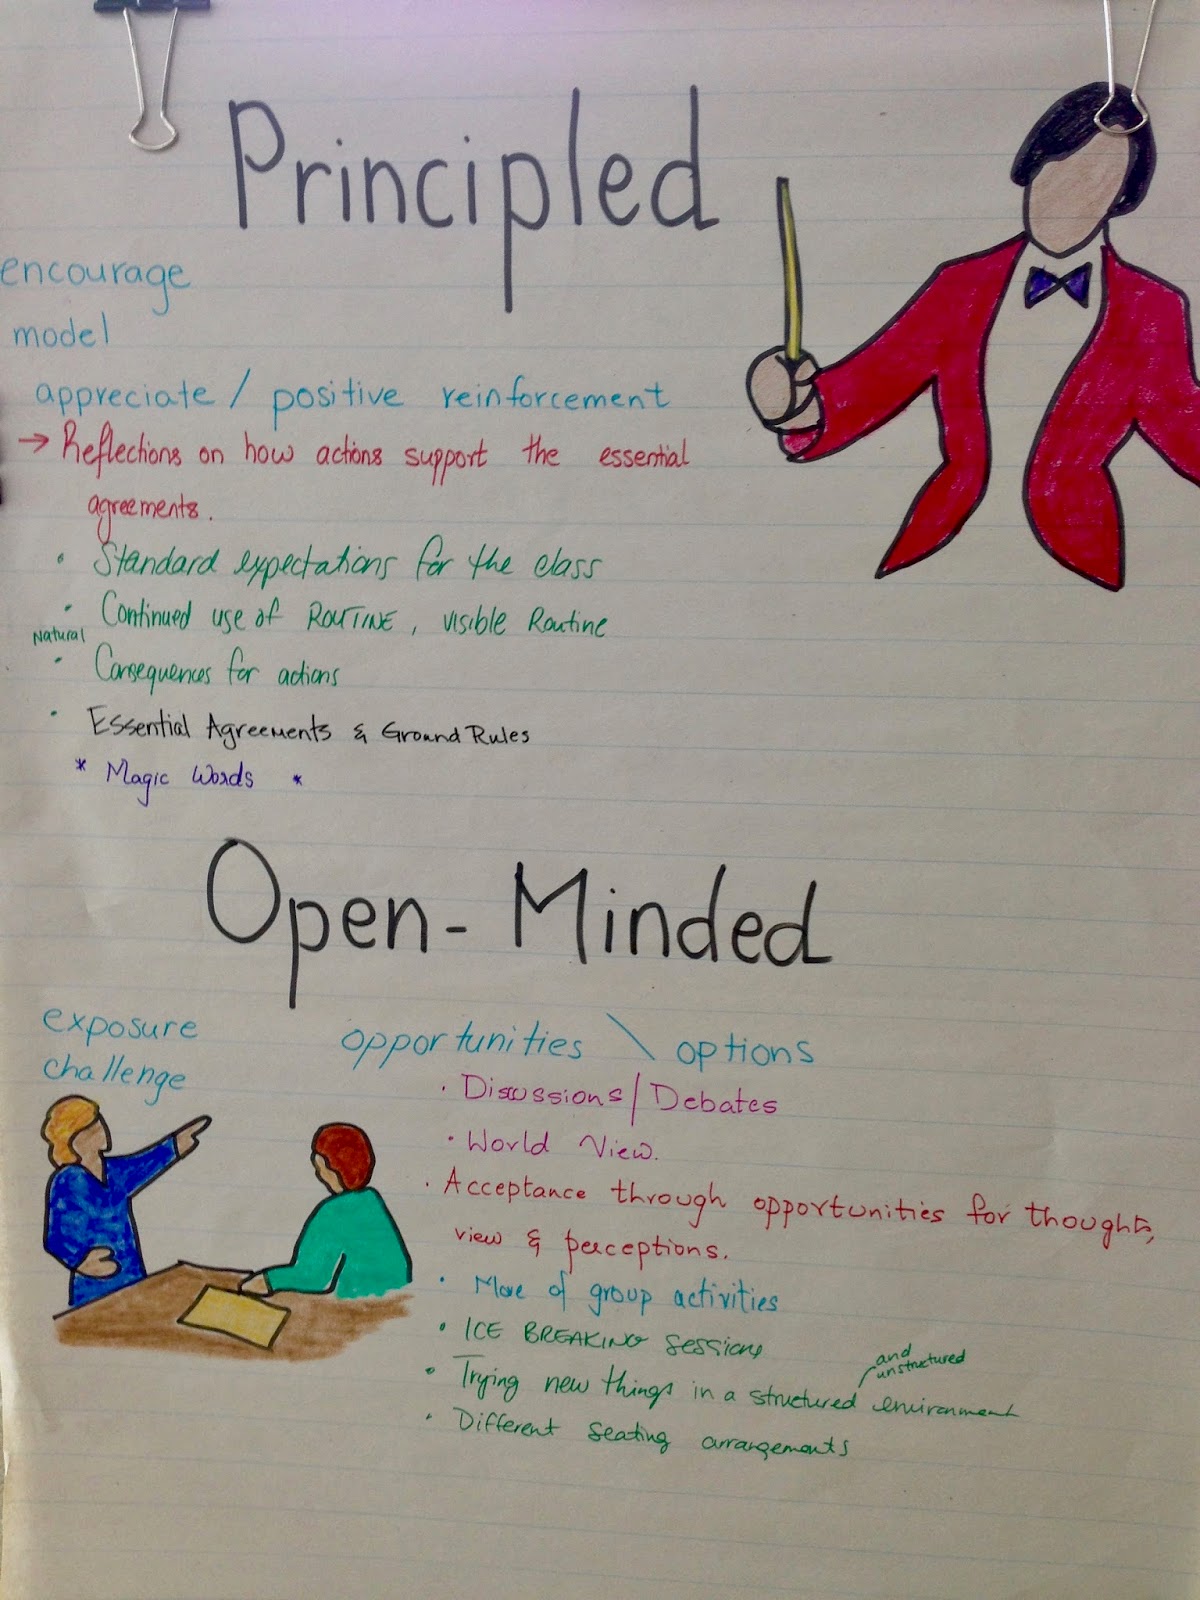 Principled
encourage
model
appreciate / positive reinforcement
→ Reflections on how actions support the essential
agreements.
• Standard expectations for the class
• Continued use of ROUTINE, visible Routine
Natural
• Consequences for actions
• Essential Agreements & Ground Rules
* Magic Words *
Open-Minded
exposure
challenge
opportunities \ options
• Discussions/Debates
• World View.
• Acceptance through opportunities for thoughts,
view & perceptions.
• More of group activities
• ICE BREAKING sessions
and
unstructured
• Trying new things in a structured environment
• Different seating arrangements